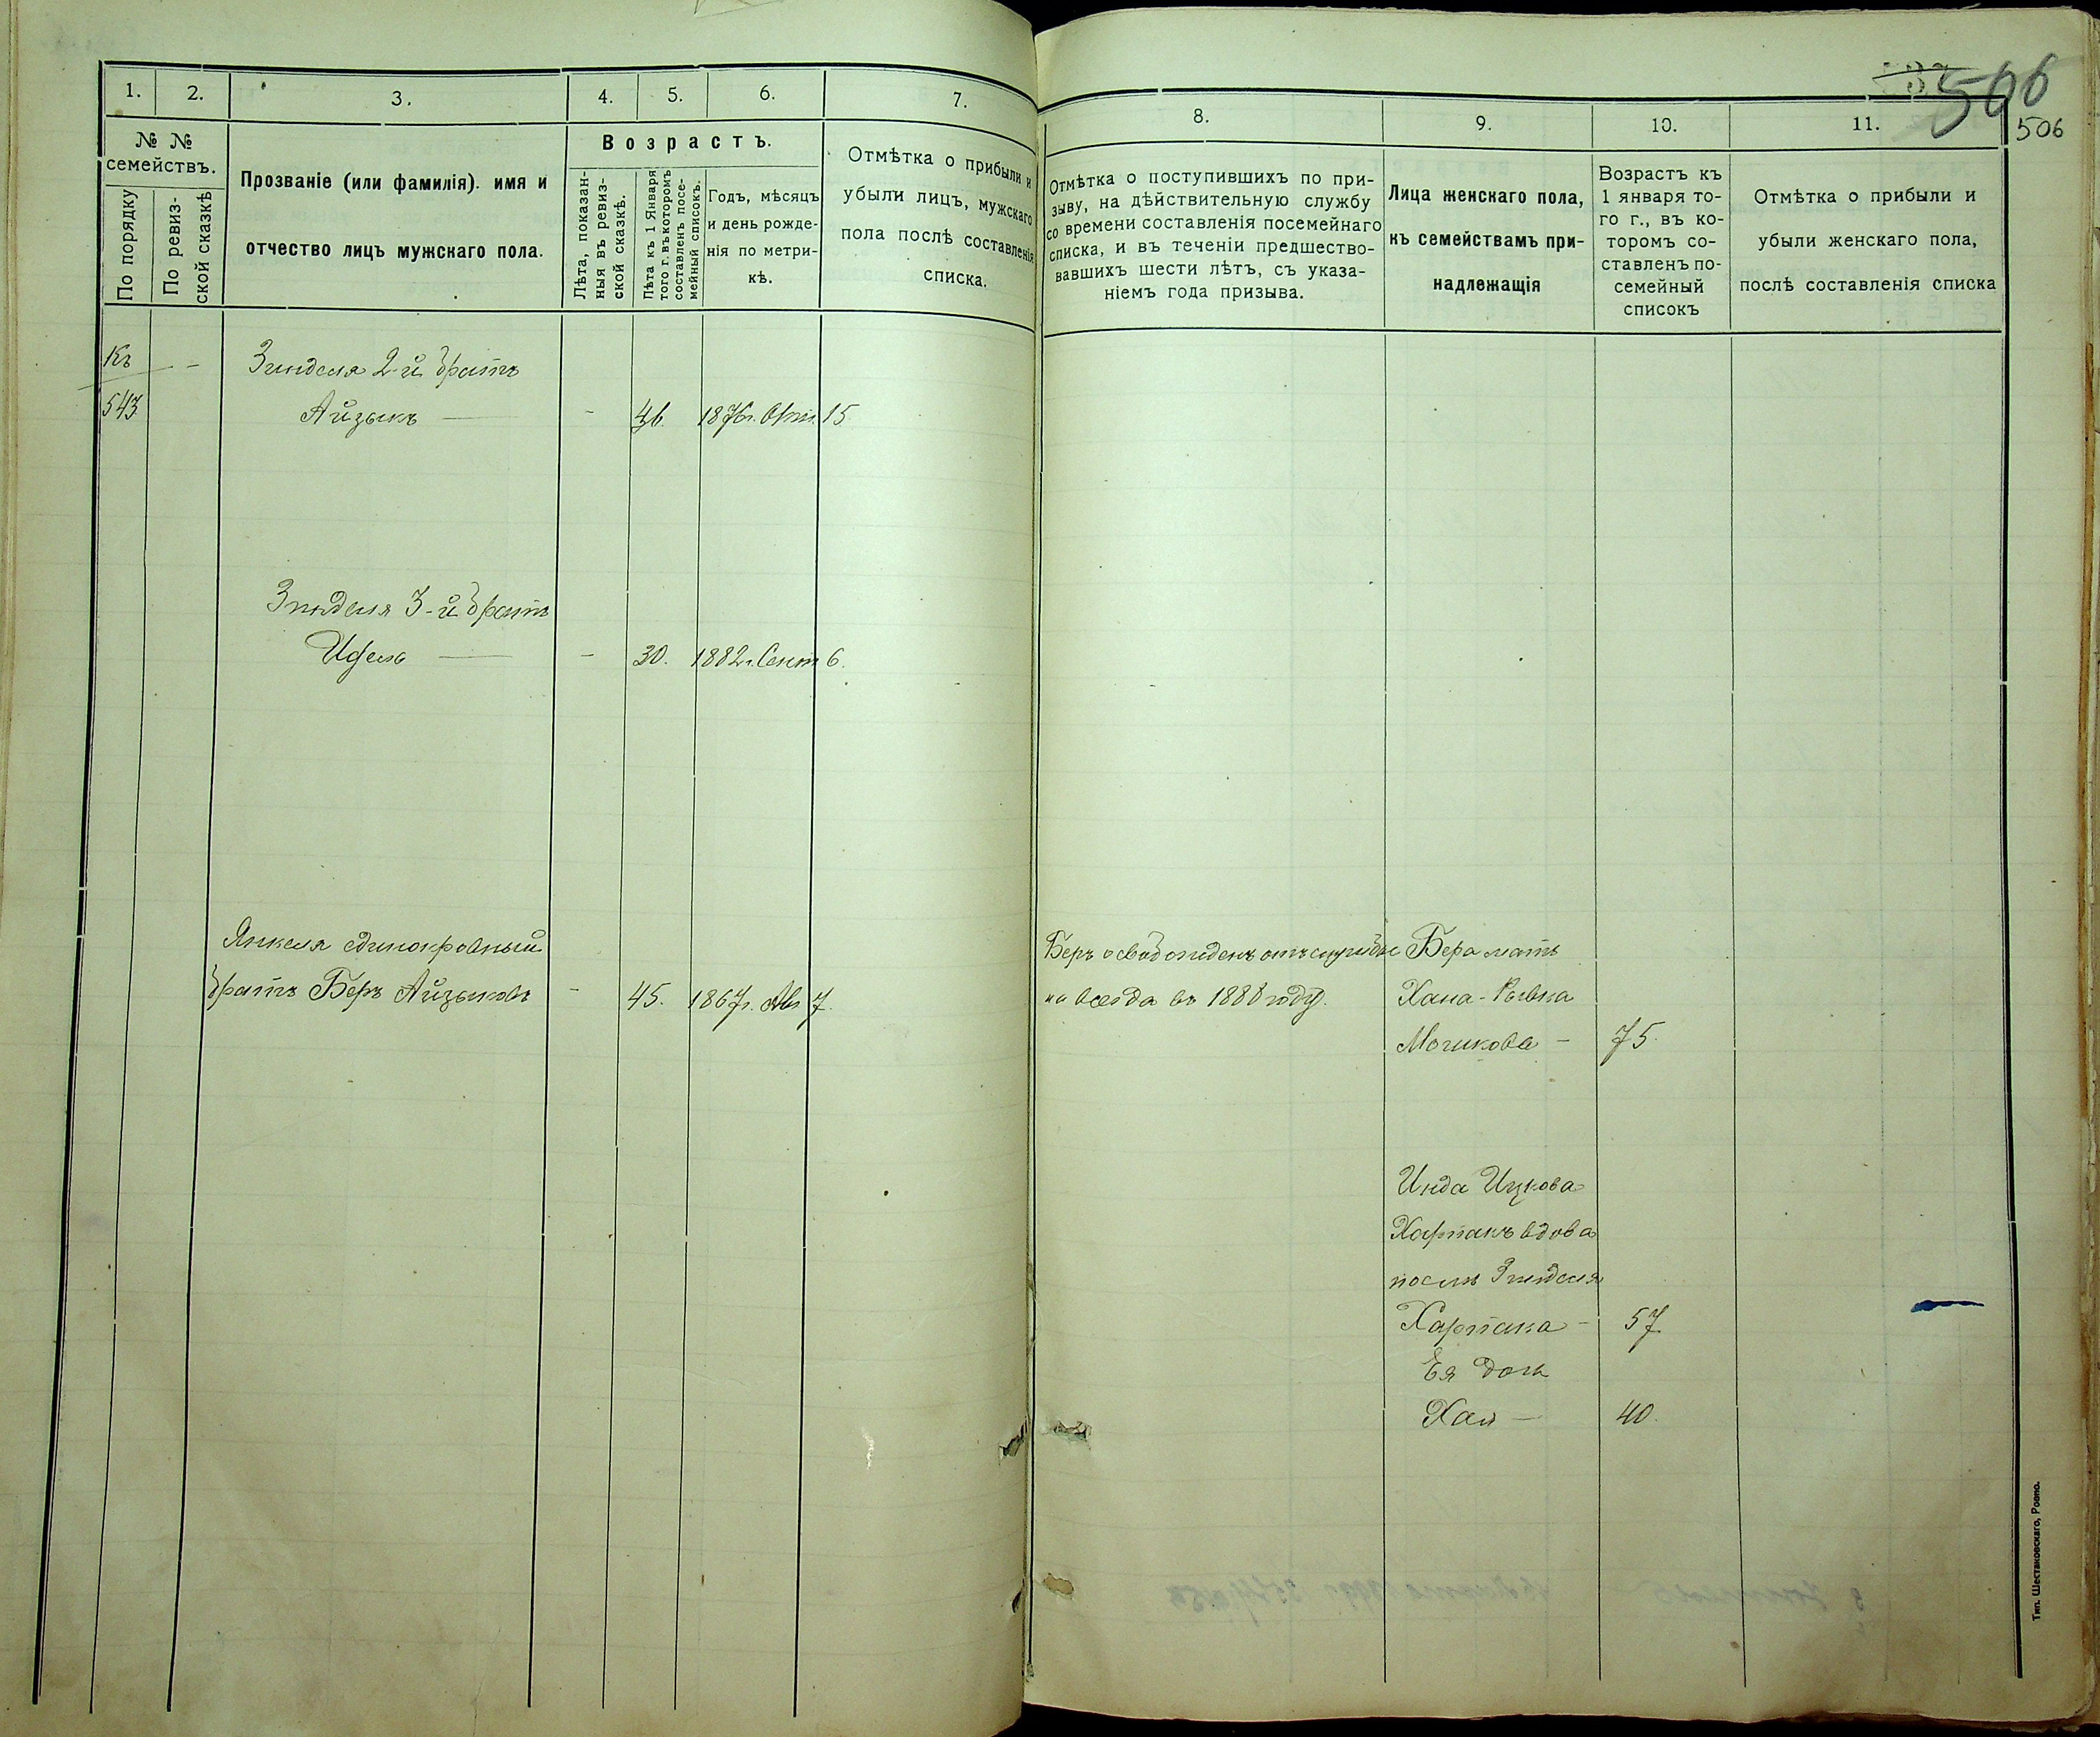 1.
2.
3.
4.
5.
6.
7.
№ №
семействъ.
По порядку
По ревиз-
ской сказкѣ
Прозваніе (или фамилія). имя и
отчество лицъ мужскаго пола.
Возрастъ.
Лѣта, показан-
ныя въ ревиз-
ской сказкѣ.
Лѣта къ 1 Января
того г. въ которомъ
составленъ посе-
мейный списокъ.
Годъ, мѣсяцъ
и день рожде-
нія по метри-
кѣ.
Отмѣтка о прибыли и
убыли лицъ, мужскаго
пола послѣ составленія
списка.
Къ - Зинделя 2-й братъ
543 Айзыкъ - - 36. 1876г. Окт. 15
Зинделя 3-й братъ
Идель - - 30. 1882г. Сент 6.
Янкеля единокровный
братъ Беръ Айзыковъ - 45. 1867г. Ав 7.
506
506
8.
9.
10.
11.
Отмѣтка о поступившихъ по при-
зыву, на дѣйствительную службу
со времени составленія посемейнаго
списка, и въ теченіи предшество-
вавшихъ шести лѣтъ, съ указа-
ніемъ года призыва.
Лица женскаго пола,
къ семействамъ при-
надлежащія
Возрастъ къ
1 января то-
го г., въ ко-
торомъ со-
ставленъ по-
семейный
списокъ
Отмѣтка о прибыли и
убыли женскаго пола,
послѣ составленія списка
Беръ освобожденъ отъ службы Бера мать
на всегда въ 1888 году. Хана-Рывка
Мошкова - 75.
Инда Ицкова
Харпакъ вдова
послѣ Зинделя
Харпака - 57.
Ея дочь
Хая - 40.
Тип. Шестаковскаго, Ровно.